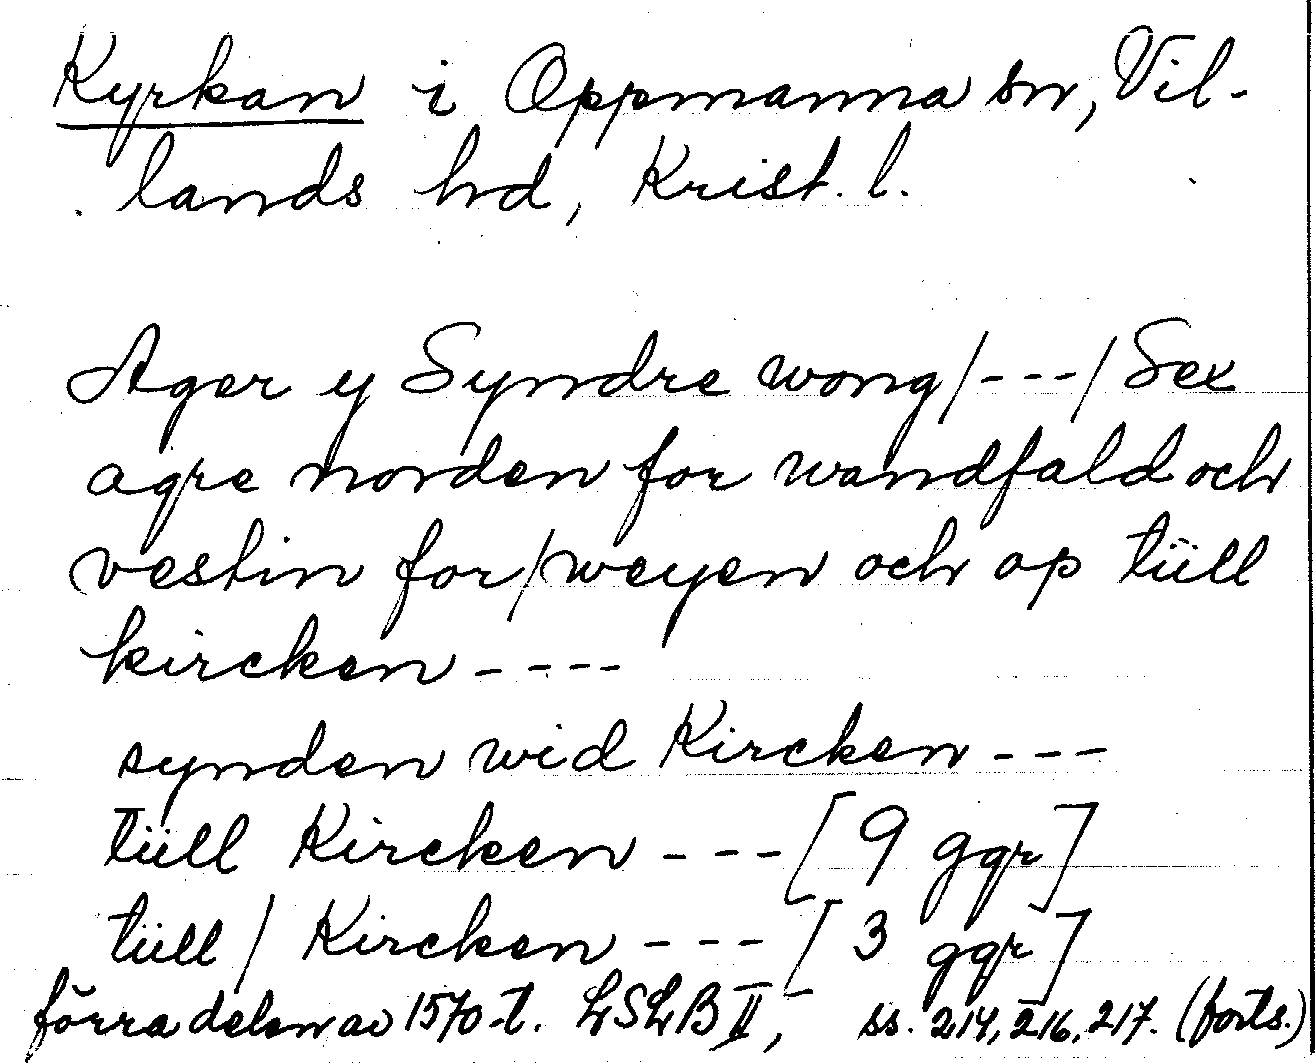 Kyrkan i Oppmanna sn, Vil-
lands hd, Krist. l.
Ager y Syndre wong/---/Sex
agre norden for wandfald och
vestin for/weyen och op tüll
kircken----
synden wid Kircken---
tüll Kircken---[9 ggr]
tüll/Kircken---[3 ggr]
förra delen av 1570-t. LSLB II, ss. 214, 216, 217. (forts.)